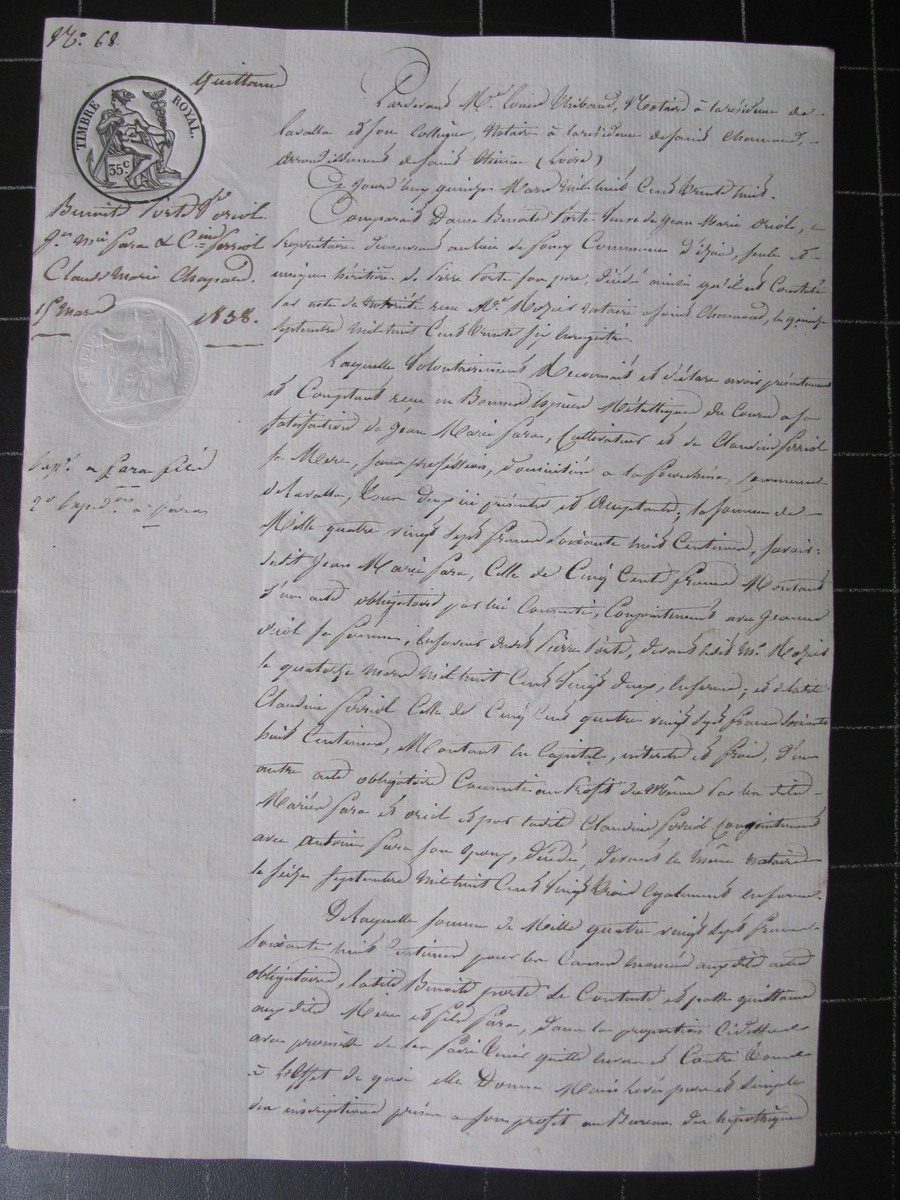 N.° 68
Quittance
TIMBRE ROYAL.
35 c
Benoite Porte V.e oriol
J.n M.ie fara & C.ine ferriol
Claude Marie Chapard.
15 Mars 1838.
Exp.on a fara fils
2.e Exp.on a
Pardevant M.e Louis Thibaud, Notaire à la résidence de
Lavalla et son Collègue, Notaire à la résidence de saint Chamond,
arrondissement de saint Etienne (Loire)
Ce Jourd'huy quinze Mars mil huit Cent trente huit.
Comparait Dame Benoite Porte Veuve de Jean Marie oriol,
Propriétaire demeurant au lieu de Commune d'izieu, seule et
unique héritière de Pierre Porte son père, décédé ainsi qu'il est Constaté
par acte de notoriété reçu M.e notaire a saint Chamond, le quinze
septembre mil huit Cent trente six Enregistré.
Laquelle Volontairement Reconnait et déclare avoir présentement
et Comptant reçu en Bonnes Espèces Métalliques du Cours a sa
satisfaction de Jean Marie fara, Cultivateur et de Claudine ferriol
sa Mere, sans profession, domiciliés a la fourchina, Commune
de Lavalla, tous deux ici présents et acceptants; la somme de
Mille quatre vingt sept francs soixante huit Centimes, savoir:
dudit Jean Marie fara, Celle de Cinq Cent francs Montant
d'un acte obligatoire par lui Consenti, Conjointement avec Jeanne
oriol sa femme, en faveur dudit Pierre Porte, devant ledit M.e
le quatorze mars mil huit Cent vingt deux, en forme; et de ladite
Claudine ferriol Celle de Cinq Cent quatre vingt sept francs soixante
huit Centimes, Montant en Capital, intérêts et frais, d'un
autre acte obligatoire Consenti au Profit du Même Par les dits
Mariés fara et oriol et par ladite Claudine ferriol Conjointement
avec Antoine fara son Epoux, décédé, devant le même notaire
le seize septembre mil huit Cent vingt trois également en forme.
De laquelle somme de Mille quatre vingt sept francs
soixante huit Centimes pour les Causes énoncées aux dits actes
obligatoires, ladite Benoite porte se Contente et passe quittance
aux dits Mère et fils fara, dans les proportions Cidessus
avec promesse de les faire tenir quitte envers et Contre tous
à l'Effet de quoi elle Donne Main levée pure et simple
des inscriptions prises a son profit au Bureau des hypothèques